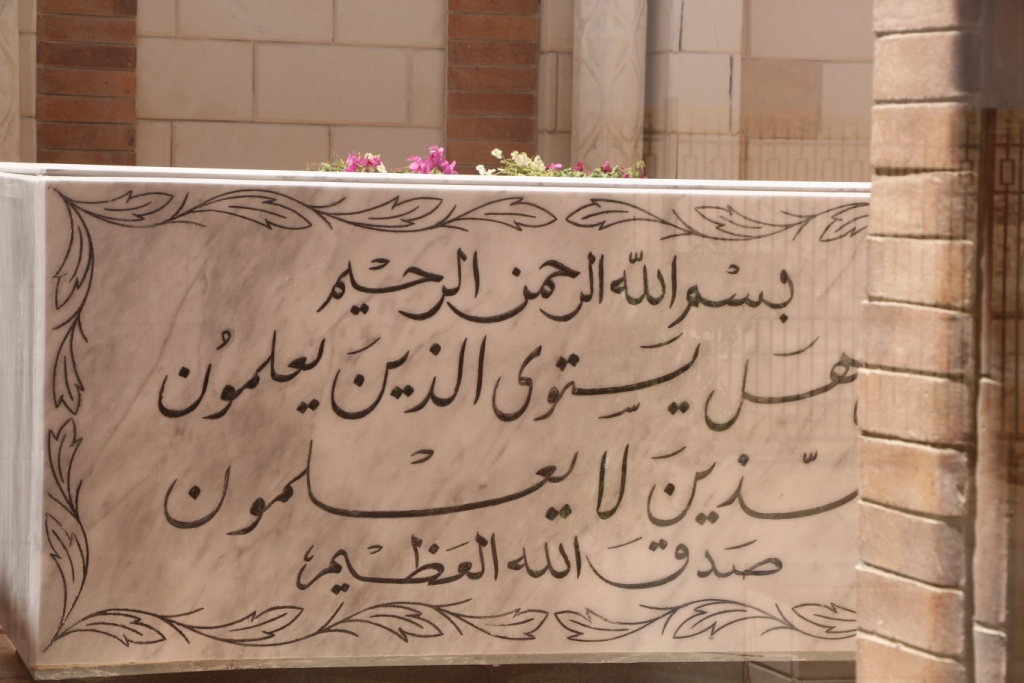 بسم الله الرحمن الرحيم
هل يستوى الذين يعلمون
ـذين لا يعلمون
صدق الله العظيم